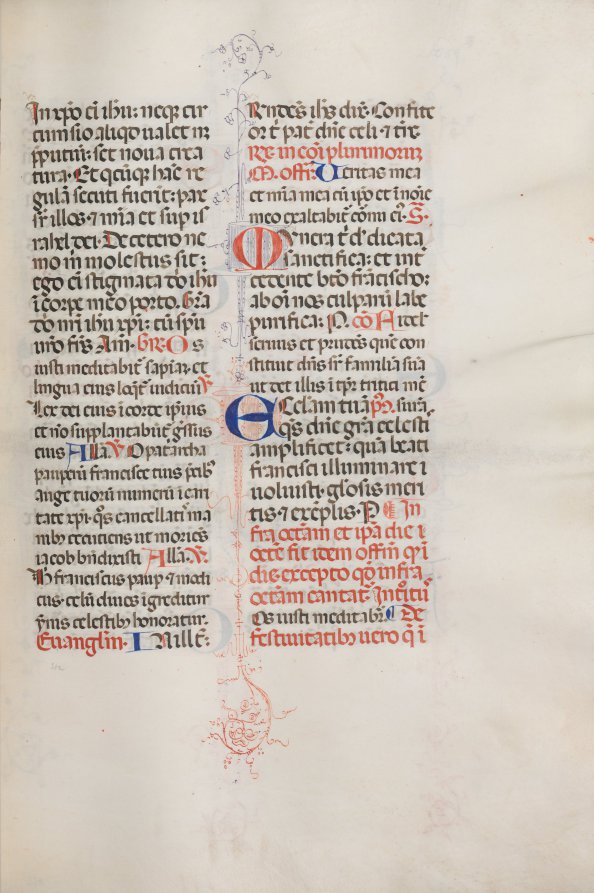 In xp̄o eī ihū: neqꝫ cir
cumsio aliqd ualet nꝫ
p̄putiū: set noua crea
tura. Et qcūqꝫ hāc re
gulā secuti fuerīt: pax
sr̄ illos. ⁊ mīa et sup is
rahel dei. De cetero ne
mo m̄ molestus sit:
ego ēi stigmata dn̄i ihū
ī corpe meo porto. Grā
dn̄i nr̄i ihū xp̄i: cū spū
ur̄o frēs Am̄. Gr̄. Os
iusti meditabit̄ sapiaꝫ. et
lingua eius loqt̄ iudiciū ℣
Lex dei eius ī corde ipīus
et nō supplantabūt̄ gssus
eius Alla. ℣. O patriarcha
pauperū francisce tuis p̄cibꝫ
auge tuorū numerū ī cari
tate xp̄i. qs cancellatꝭ ma
nibꝫ cecutiens ut moriēs
iacob bn̄dixisti Alla. ℣.
Hic franciscus paup ⁊ modi
cus. celū diues īgreditur
ymnis celestibꝫ honoratur.
Euangliu. In ille:
Rn̄dens ihs dix̄. Confite
or t̄ pat̄ dn̄e celi ⁊ tr̄e.
Rx. in cōi plurimorum
M. offr̄. Ueritas mea
et mīa mea cū ip̄o et ī noīe
meo exaltabit̄ cornu ei. S.
Munera t̄ d. dicata
sanctifica: et int
cedente btō francisco:
ab oī nos culparū labe
purifica: P. Cō. Fidel
seruus et prudēs quē con
stituit dn̄s sr̄ familiā suā
ut det illis ī tp̄r tritici mē
Ecclam tuā p̄o. suraꝫ.
qs dn̄e grā celestꝭ
amplificet: quā beati
francisci illuminare
uoluisti. glōsis meri
tis ⁊ exēplis. P. In
fra octam et ip̄a die
octē fit idem offm̄ qd ī
die excepto qd infra
octam cantat̄ Introitū
Os iusti meditabr̄. De
festiuitatibꝫ uero q ī